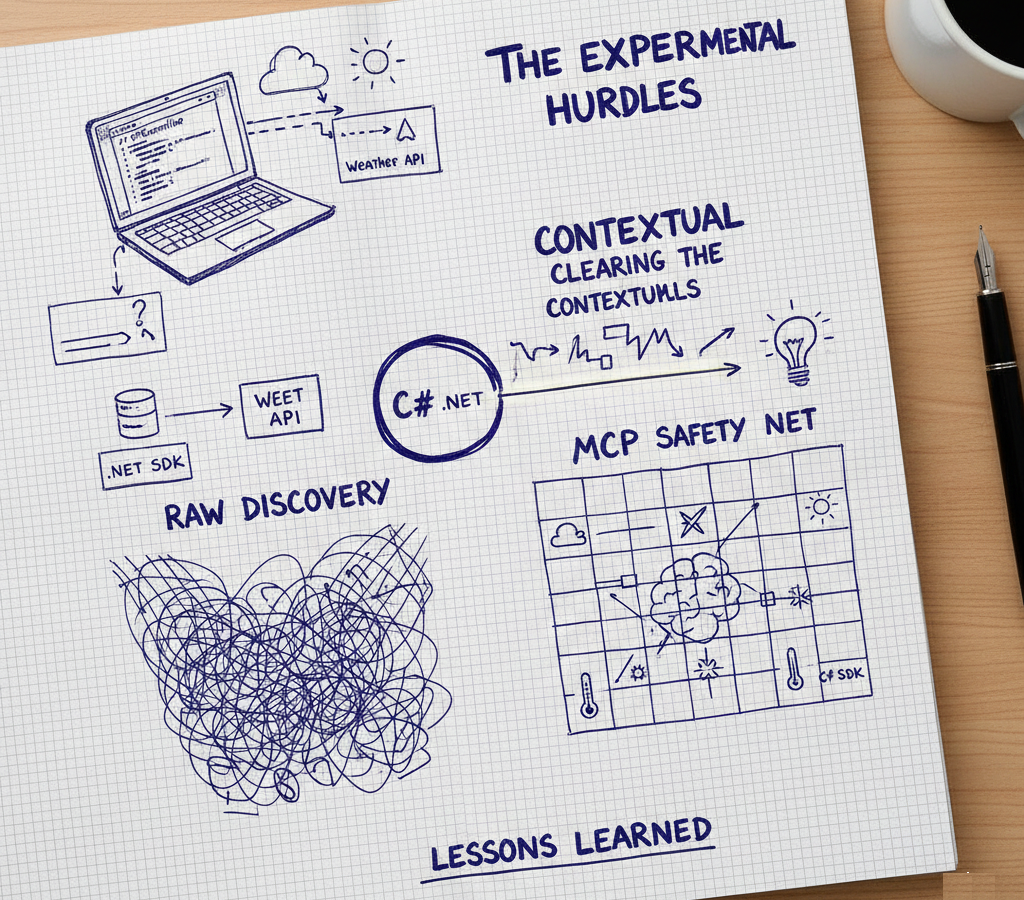 THE EXPERMENTAL
HURDLES
Weather API
CONTEXTUAL
CLEARING THE
?
C# .NET
WEET
API
.NET SDK
MCP SAFETY NET
RAW DISCOVERY
C# SDK
LESSONS LEARNED